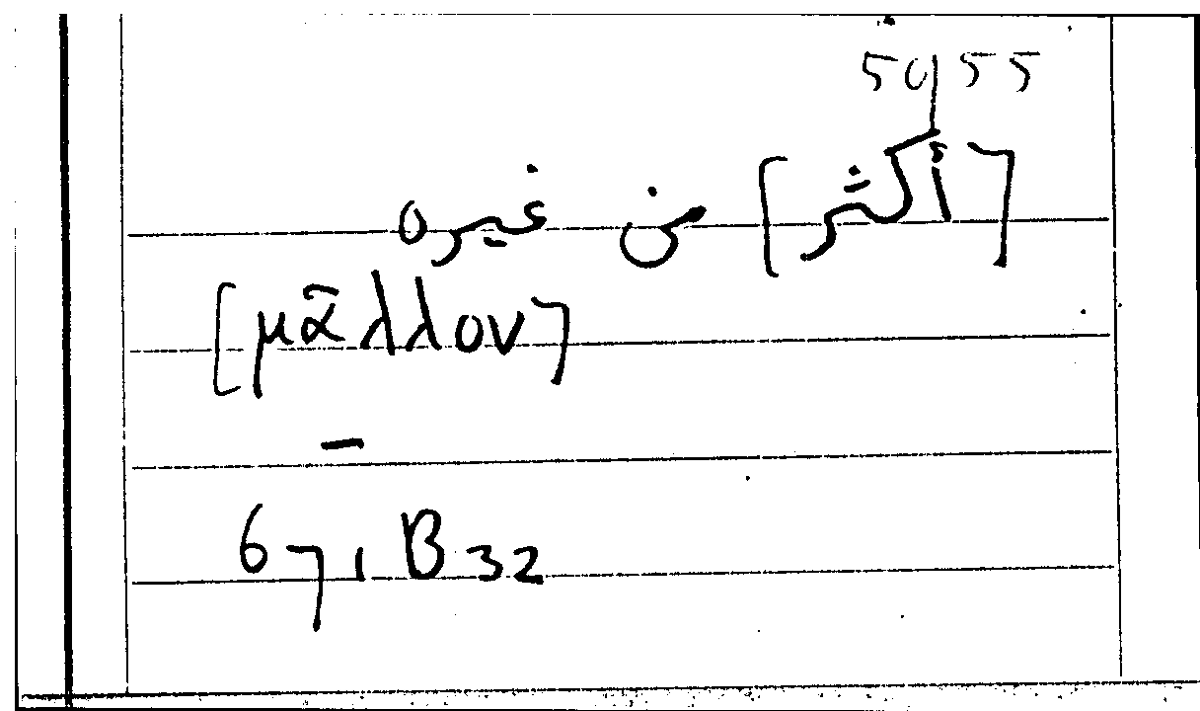 50,55
[أكثر] من غيره
[μᾶλλον]
-
671 B 32